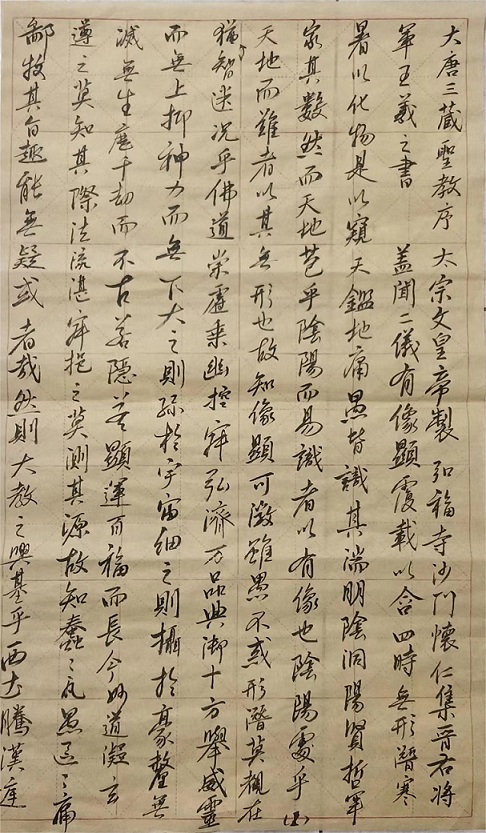 大唐三藏聖教序 太宗文皇帝製 弘福寺沙門懷仁集晉右將
軍王羲之書 蓋聞二儀有像顯覆載以含四時無形潛寒
暑以化物是以窺天鑑地庸愚皆識其端明陰洞陽賢哲罕
窮其數然而天地苞乎陰陽而易識者以有像也陰陽處乎
天地而難者以其無形也故知像顯可徵雖愚不惑形潛莫覩在
猶智迷況乎佛道崇虛乘幽控寂弘濟万品典御十方舉威靈
而無上抑神力而無下大之則弥於宇宙細之則攝於毫釐無
滅無生歷千劫而不古若隱若顯運百福而長今妙道凝玄
遵之莫知其際法流湛寂挹之莫測其源故知蠢〻凡愚區〻庸
鄙投其旨趣能無疑或者哉然則大教之興基乎西土騰漢庭